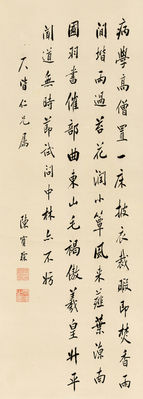 病學高僧置一床披衣裁暇即焚香
閒堦雨過苔花潤小簟風來薤葉涼南
國羽書催部曲東山毛褐傲羲皇升平
聞道無時節試問中林亦不妨
仁兄屬
陳寶琛